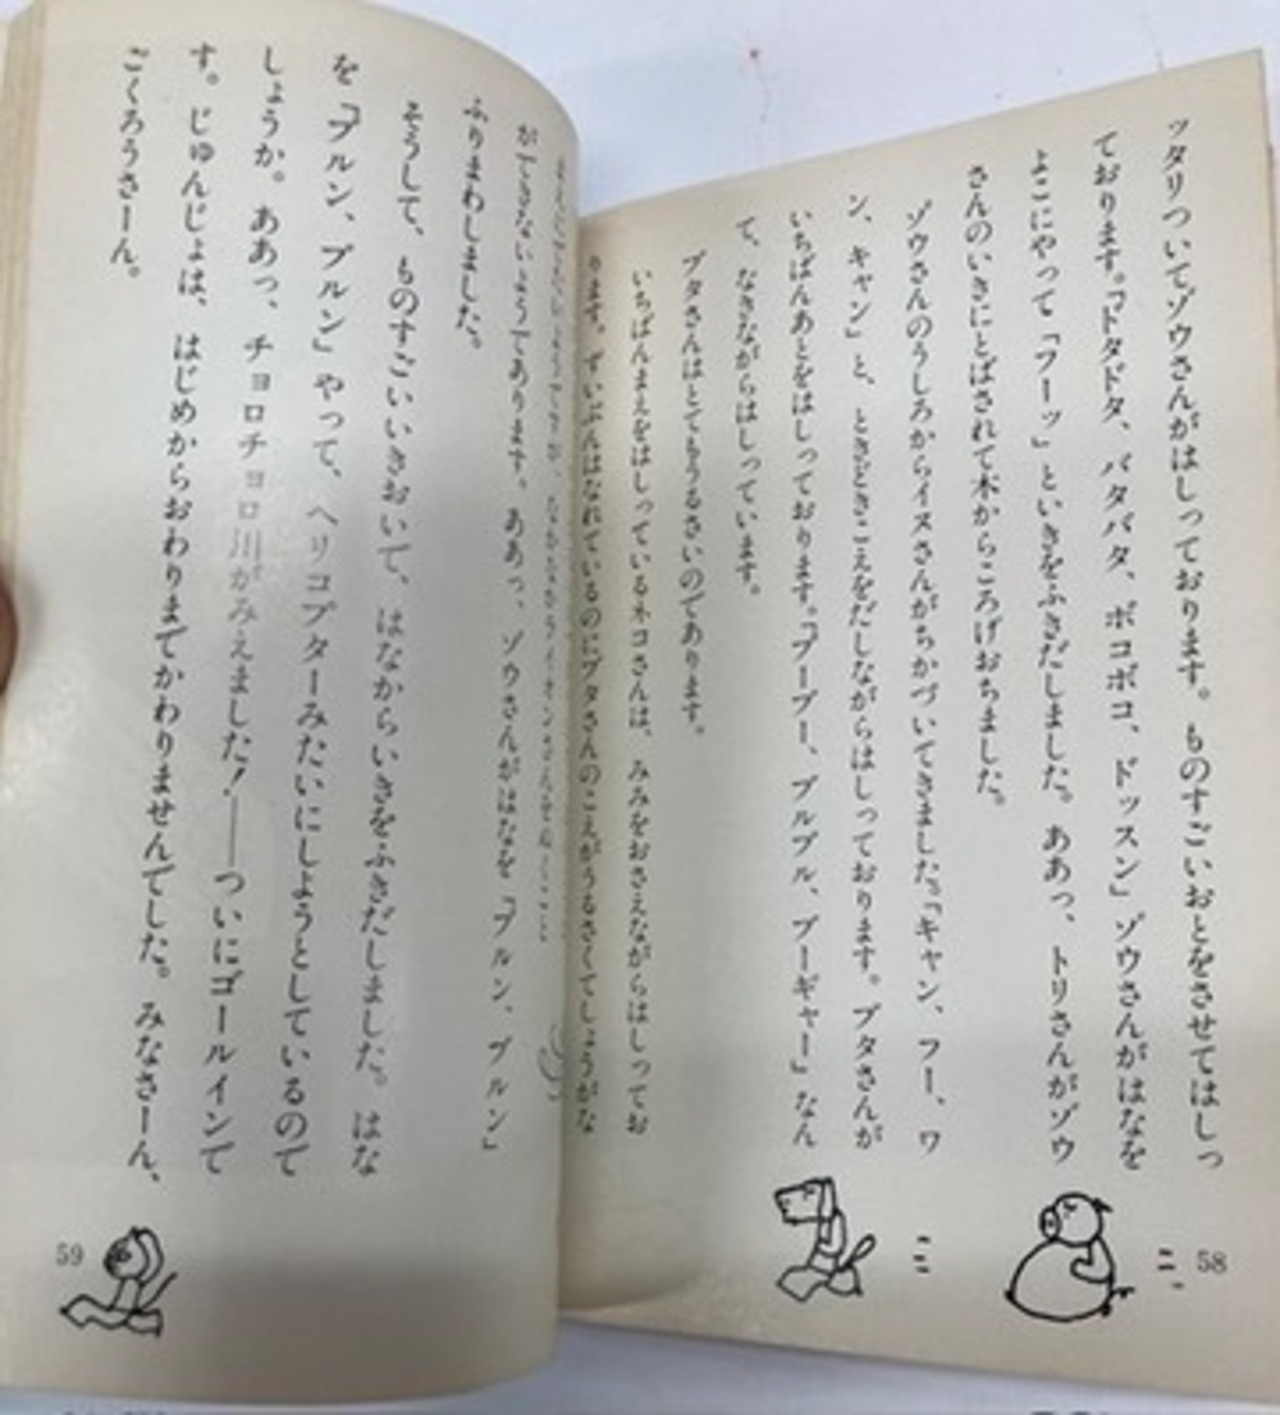 ッタリついてゾウさんがはしっております。ものすごいおとをさせてはしっ
ております。「ドタドタ、バタバタ、ボコボコ、ドッスン」ゾウさんがはなを
よこにやって「フーッ」といきをふきだしました。ああっ、トリさんがゾウ
さんのいきにとばされて木からころげおちました。
ゾウさんのうしろからイヌさんがちかづいてきました。「キャン、フー、ワ
ン、キャン」と、ときどきこえをだしながらはしっております。ブタさんが
いちばんあとをはしっております。「ブーブー、ブルブル、ブーギャー」なん
て、なきながらはしっています。
ブタさんはとてもうるさいのであります。
いちばんまえをはしっているネコさんは、みみをおさえながらはしってお
ります。ずいぶんはなれているのにブタさんのこえがうるさくてしょうがな
58
ができないようであります。ああっ、ゾウさんがはなを「ブルン、ブルン」
ふりまわしました。
そうして、ものすごいいきおいで、はなからいきをふきだしました。はな
を「ブルン、ブルン」やって、ヘリコプターみたいにしようとしているので
しょうか。ああっ、チョロチョロ川がみえました！――ついにゴールインで
す。じゅんじょは、はじめからおわりまでかわりませんでした。みなさーん、
ごくろうさーん。
59